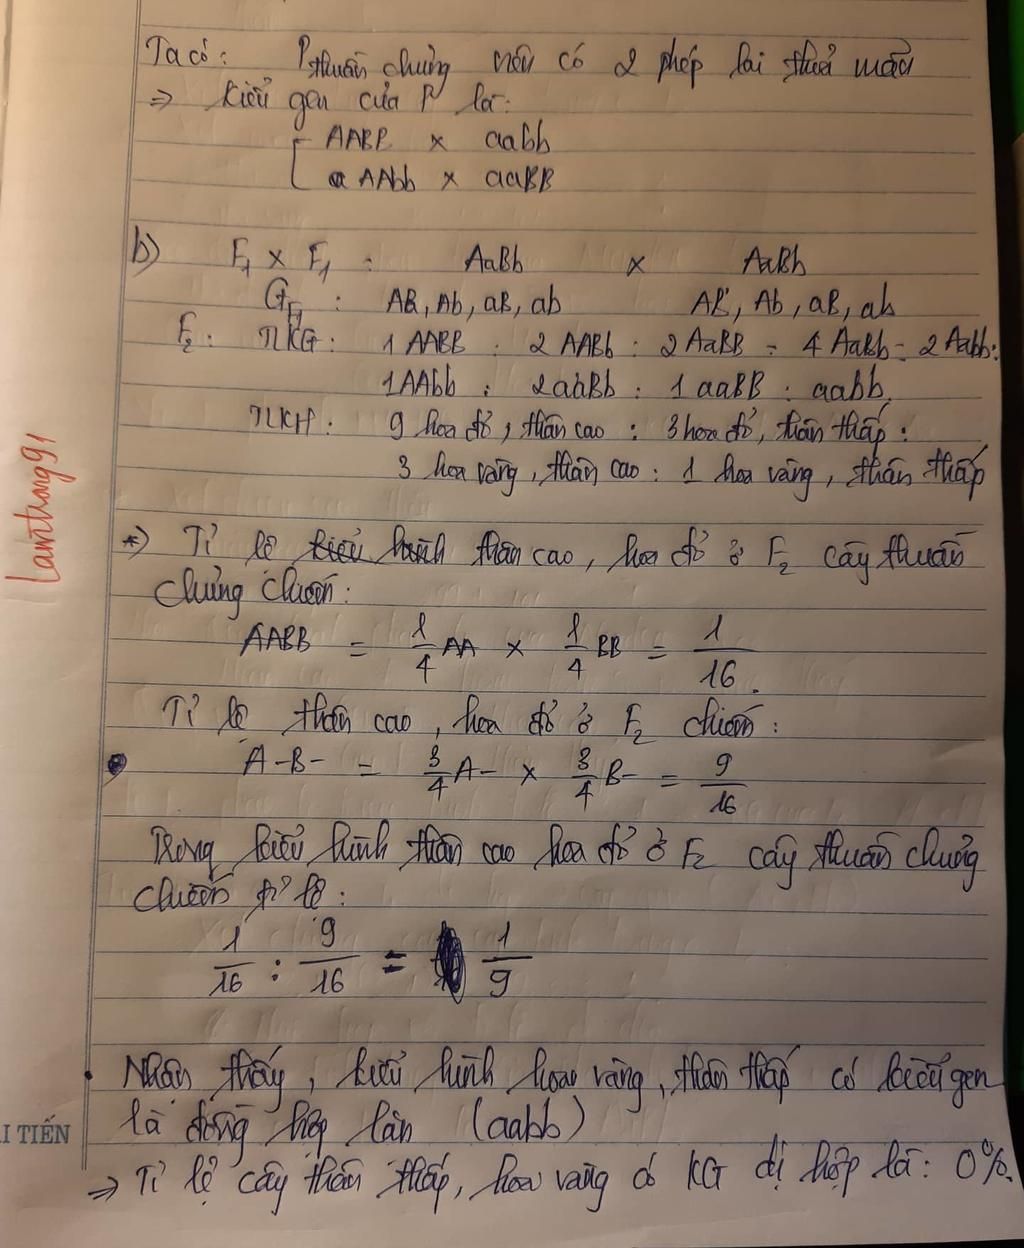 Ta có: P thuần chủng nên có 2 phép lai thoả mãn
=> kiểu gen của P là:
AABB x aabb
AAbb x aaBB
b) F1 x F1 : AaBb x AaBb
GF1 : AB, Ab, aB, ab AB, Ab, aB, ab
F2: TLKG: 1 AABB : 2 AABb : 2 AaBB : 4 AaBb : 2 Aabb :
1AAbb : 2aaBb : 1 aaBB : aabb
TLKH: 9 hoa đỏ, thân cao : 3 hoa đỏ, thân thấp :
3 hoa vàng, thân cao : 1 hoa vàng, thân thấp
*) Tỉ lệ kiểu hình thân cao, hoa đỏ ở F2 cây thuần
chủng chiếm:
AABB = 1/4 AA x 1/4 BB = 1/16.
Tỉ lệ thân cao, hoa đỏ ở F2 chiếm:
A-B- = 3/4 A- x 3/4 B- = 9/16
Trong kiểu hình thân cao hoa đỏ ở F2 cây thuần chủng
chiếm tỉ lệ:
1/16 : 9/16 = 1/9
Nhận thấy, kiểu hình hoa vàng, thân thấp có kiểu gen
là đồng hợp lặn (aabb)
=> Tỉ lệ cây thân thấp, hoa vàng có KG dị hợp là: 0%.
lamtung91
I TIẾN